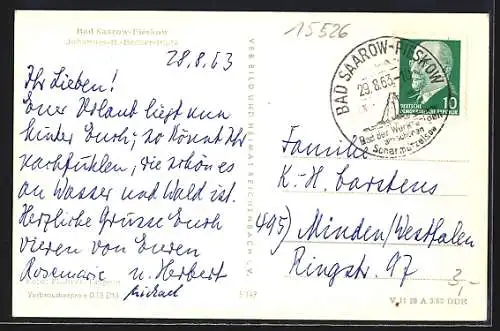 Bad Saarow-Pieskow
Johannes-R.-Becher-Platz
15526
28.8.63
Ihr Lieben!
Euer Urlaub liegt nun
hinter Euch; so könnt Ihr
nachfühlen, wie schön es
an Wasser und Wald ist.
Herzliche Grüsse Euch
vieren von Euren
Rosemarie u. Herbert
Michael
Verbraucherpreis 0.15 DM
VEB BILD UND HEIMAT REICHENBACH I. V.
BAD SAAROW-PIESKOW
29.8.63
Bad der Werktätigen
am schönen
Scharmützelsee
DEUTSCHE
DEMOKRATISCHE REPUBLIK
10
Familie
K.-H. Carstens
495) Minden/Westfalen
Ringstr. 97
3,-
V 11 28 A 3/63 DDR